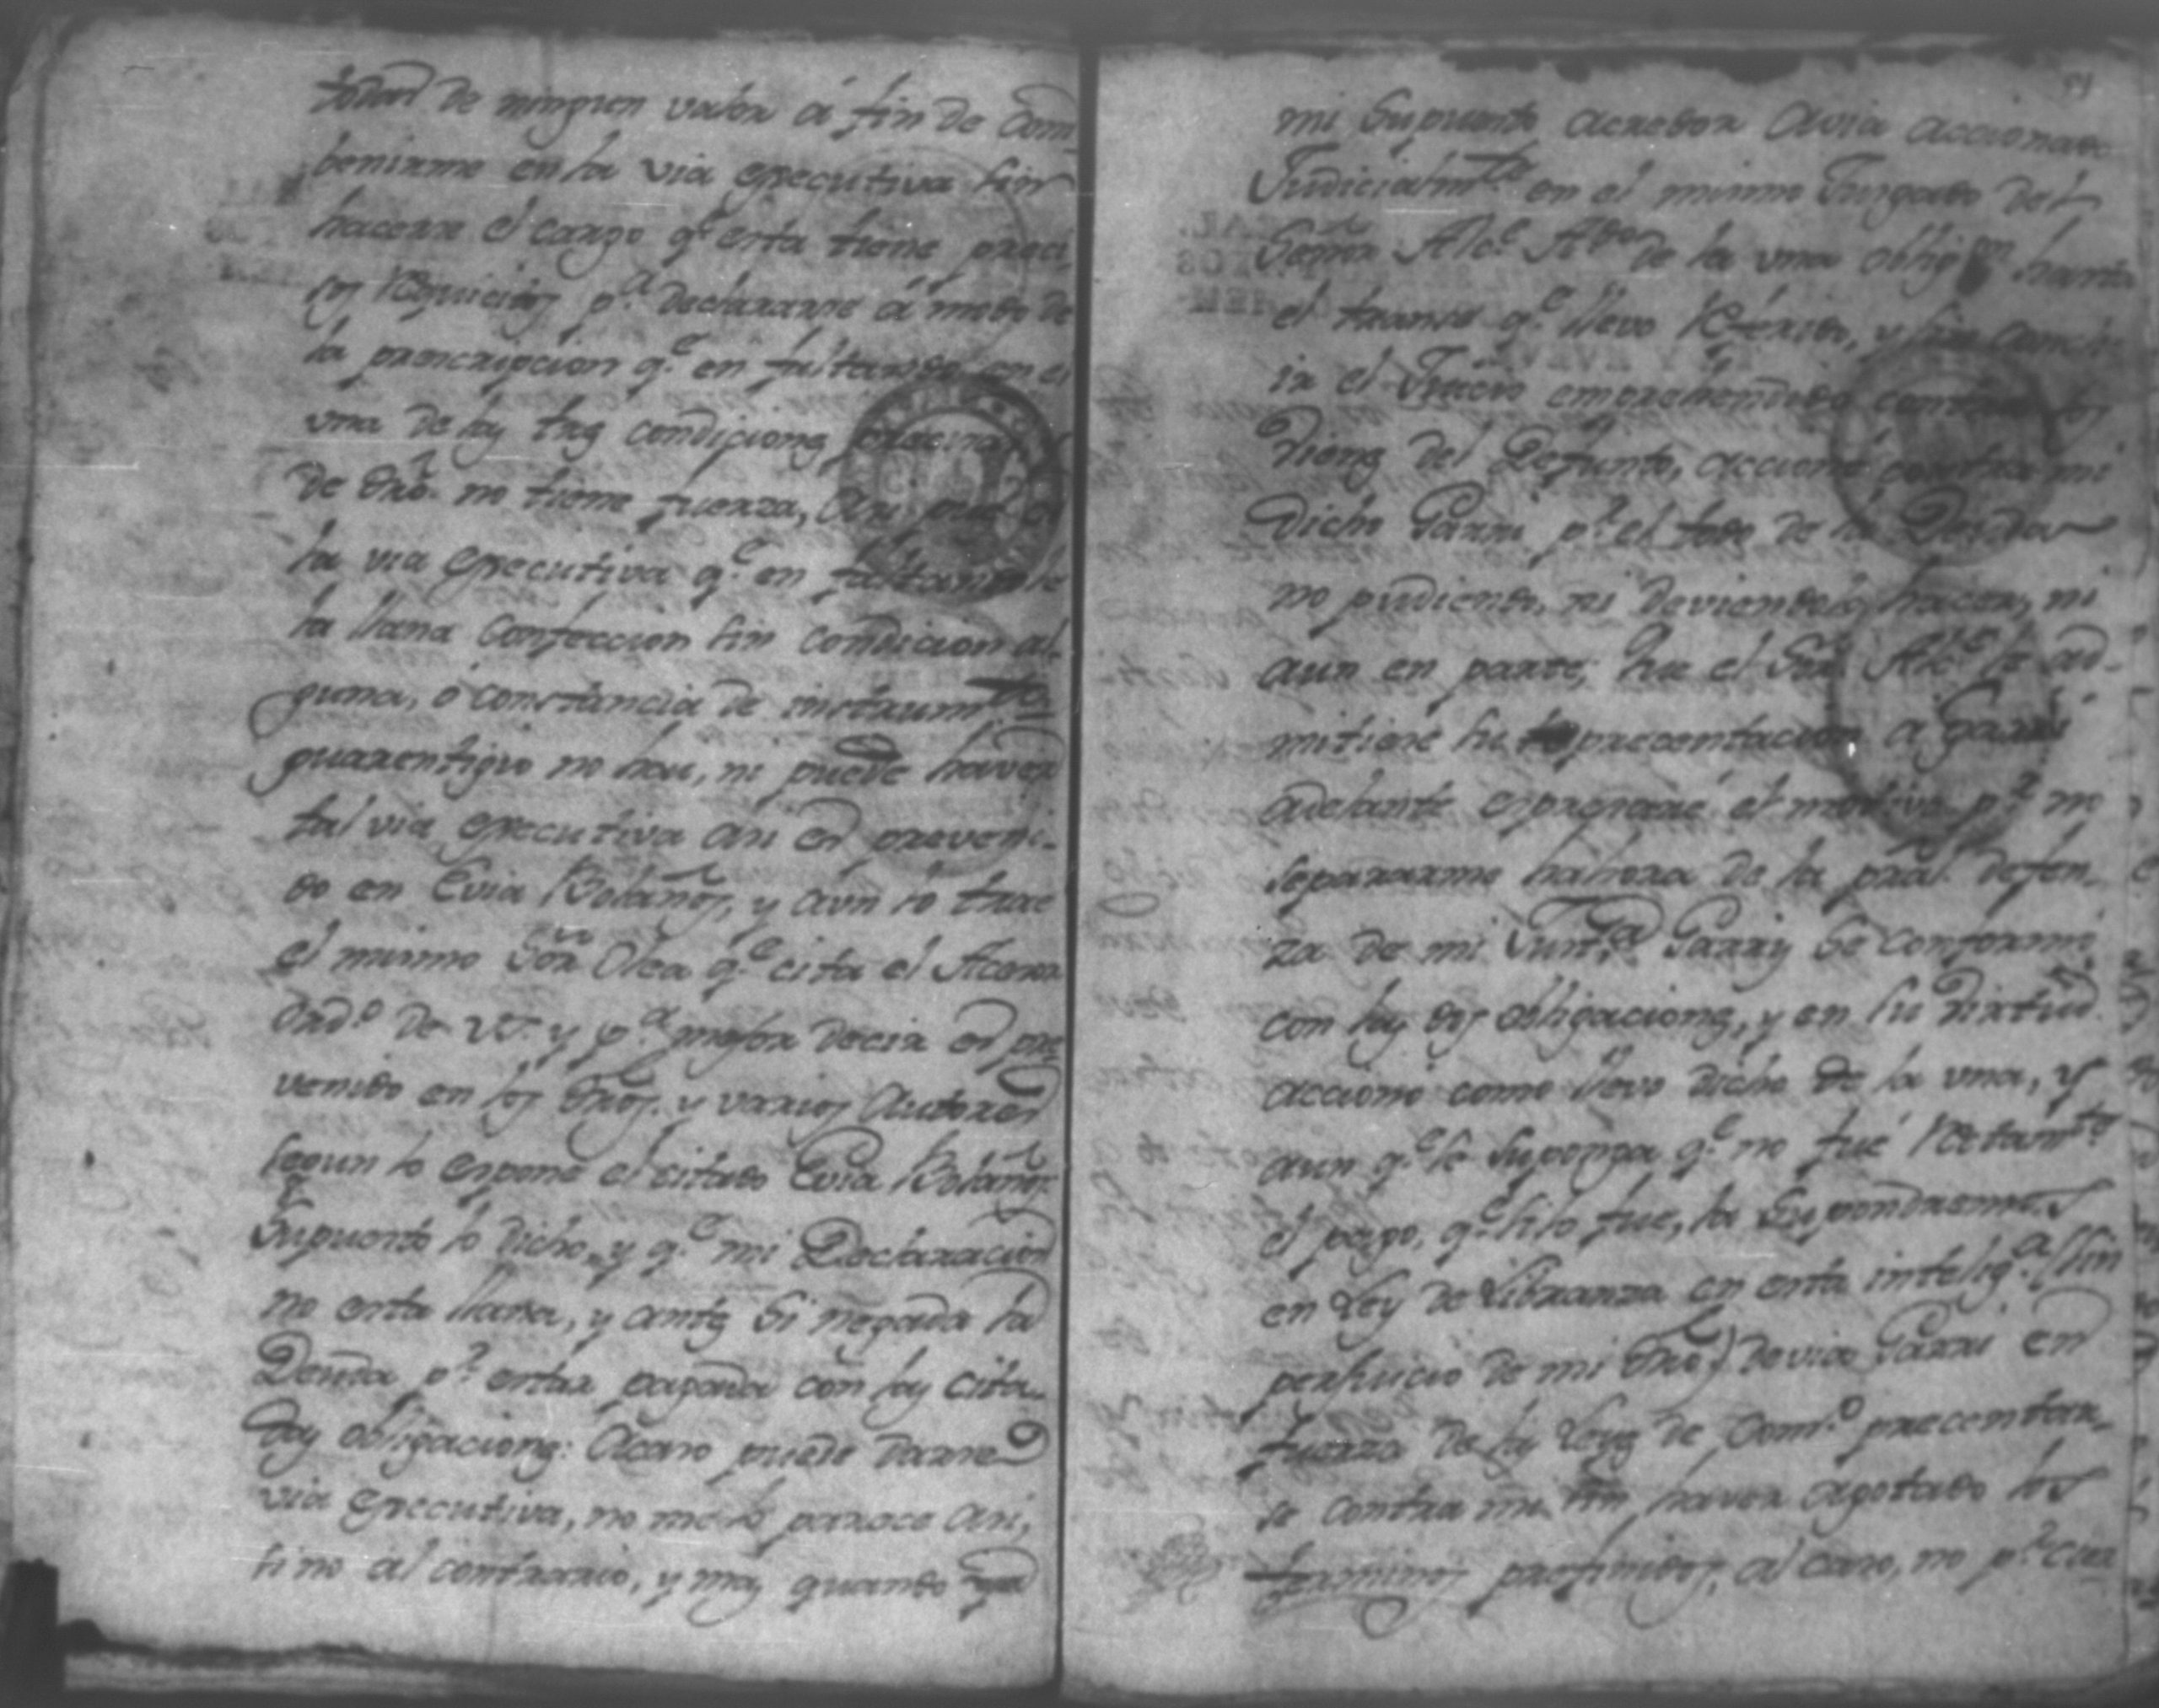 todas de ningun valor á fin de Com-
benirme en la via egecutiva sin
hacerse el cargo qe. esta tiene preci-
sos Requicitos pa. declararse á modo de
la prescripcion qe. en faltando con el
una de las tres condiciones
de dro. no tiene fuerza, Asi
la via egecutiva qe. en faltando le
la llana Confeccion sin condicion al-
guna, ó constancia de instrumto.
guarentigio no hai, ni puede haver
tal via egecutiva asi es preveni-
do en Evia Bolaños, y aun lo trae
el mismo Sor. Olea qe. cita el Acesor
Ordo. de V. y pa. mejor decir es pre-
venido en los dros. y varios Autores
segun lo espone el citado Evia Bolaños.
Supuesto lo dicho, y qe. mi Declaracion
no esta llana, y antes si negada la
Deuda pr. estar pagada con las cita-
das obligaciones: Acaso puede darse
via egecutiva, no me lo parece asi,
si no al contrario, y mas quando
mi Supuesto acredor avia accionado
Judicialmte. en el mismo Jusgado del
Señor Alce. de la una obligon. hasta
el transe qe. llevo Referido, y sin
ir el Juicio emprehendido contra los
Vienes del Defunto, accionó contra mi
dicho Garri pr. el todo de la Deuda
no pudiendo, ni deviendolo hacer, ni
aun en parte, que el Sor. Alce. le ad-
mitiese su precentacion a Garri
adelante espresaré el motivo pr. no
separarme hahora de la pral. defen-
za de mi Justa. Garri Se conformó
con las dos obligaciones, y en su virtud
accionó como llevo dicho de la una, y
aun qe. se suponga qe. no fué Retamte.
el pago, qe. silo fue, la Supondremos
en Ley de Libranza en esta inteliga. (sin
perjuicio de mi dro.) devia Garri en
fuerza de las Leyes de Como. precentar-
se contra mi sin haver agotado los
terminos prefinidos, al caso, no pr. cier-